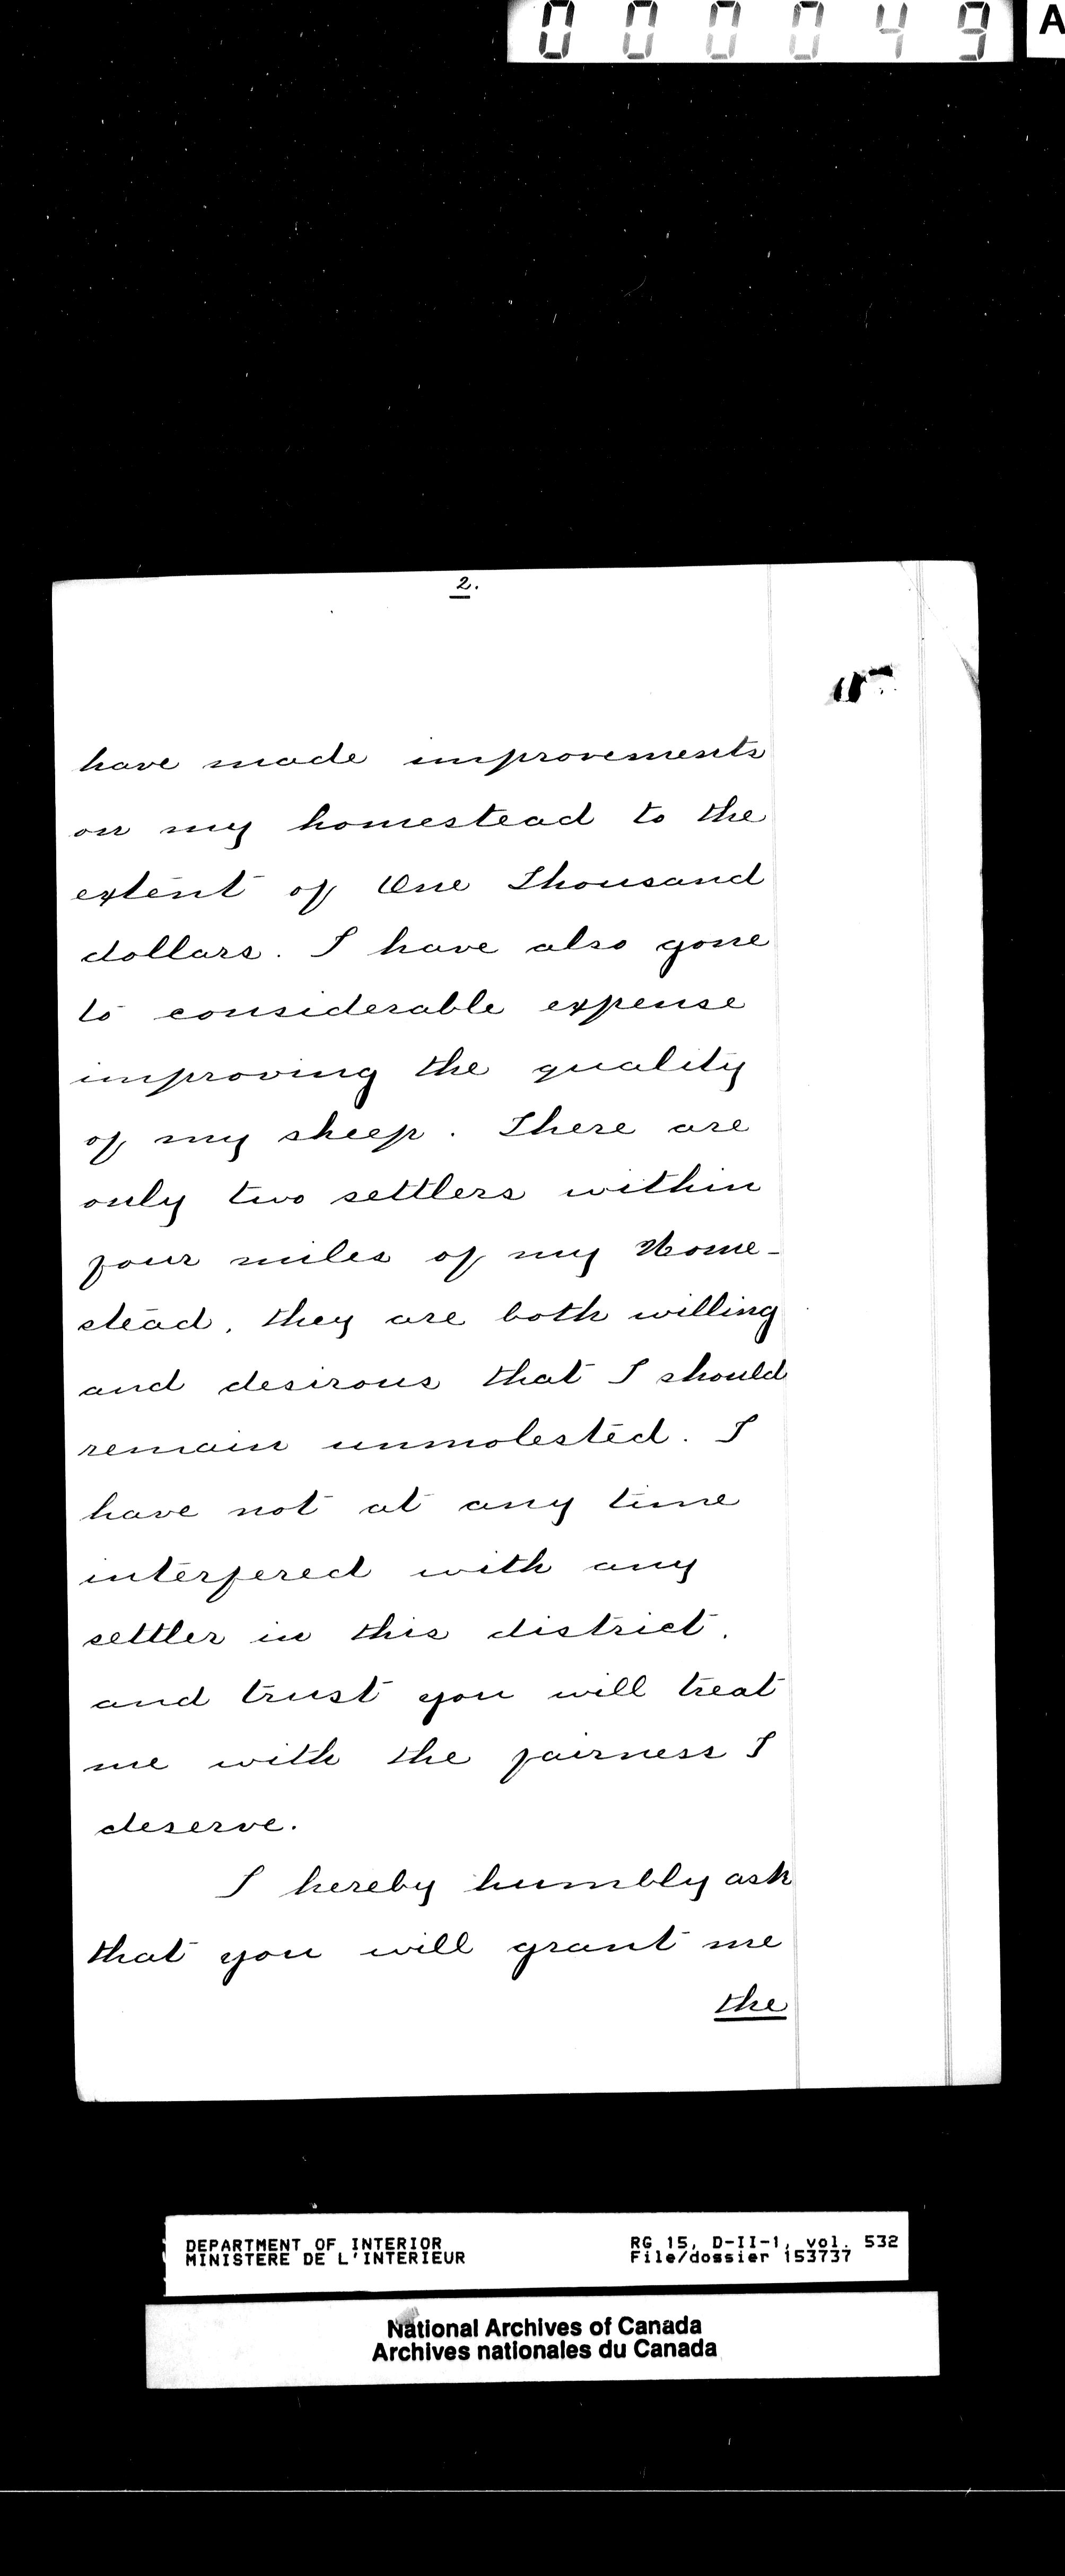 000049
A
2.
have made improvements
on my homestead to the
extent of One Thousand
dollars. I have also gone
to considerable expense
improving the quality
of my sheep. There are
only two settlers within
four miles of my Home-
stead, they are both willing
and desirous that I should
remain unmolested. I
have not at any time
interfered with any
settler in this district.
and trust you will treat
me with the fairness I
deserve.
I hereby humbly ask
that you will grant me
the
DEPARTMENT OF INTERIOR RG 15, D-II-1, vol. 532
MINISTERE DE L'INTERIEUR File/dossier 153737
National Archives of Canada
Archives nationales du Canada